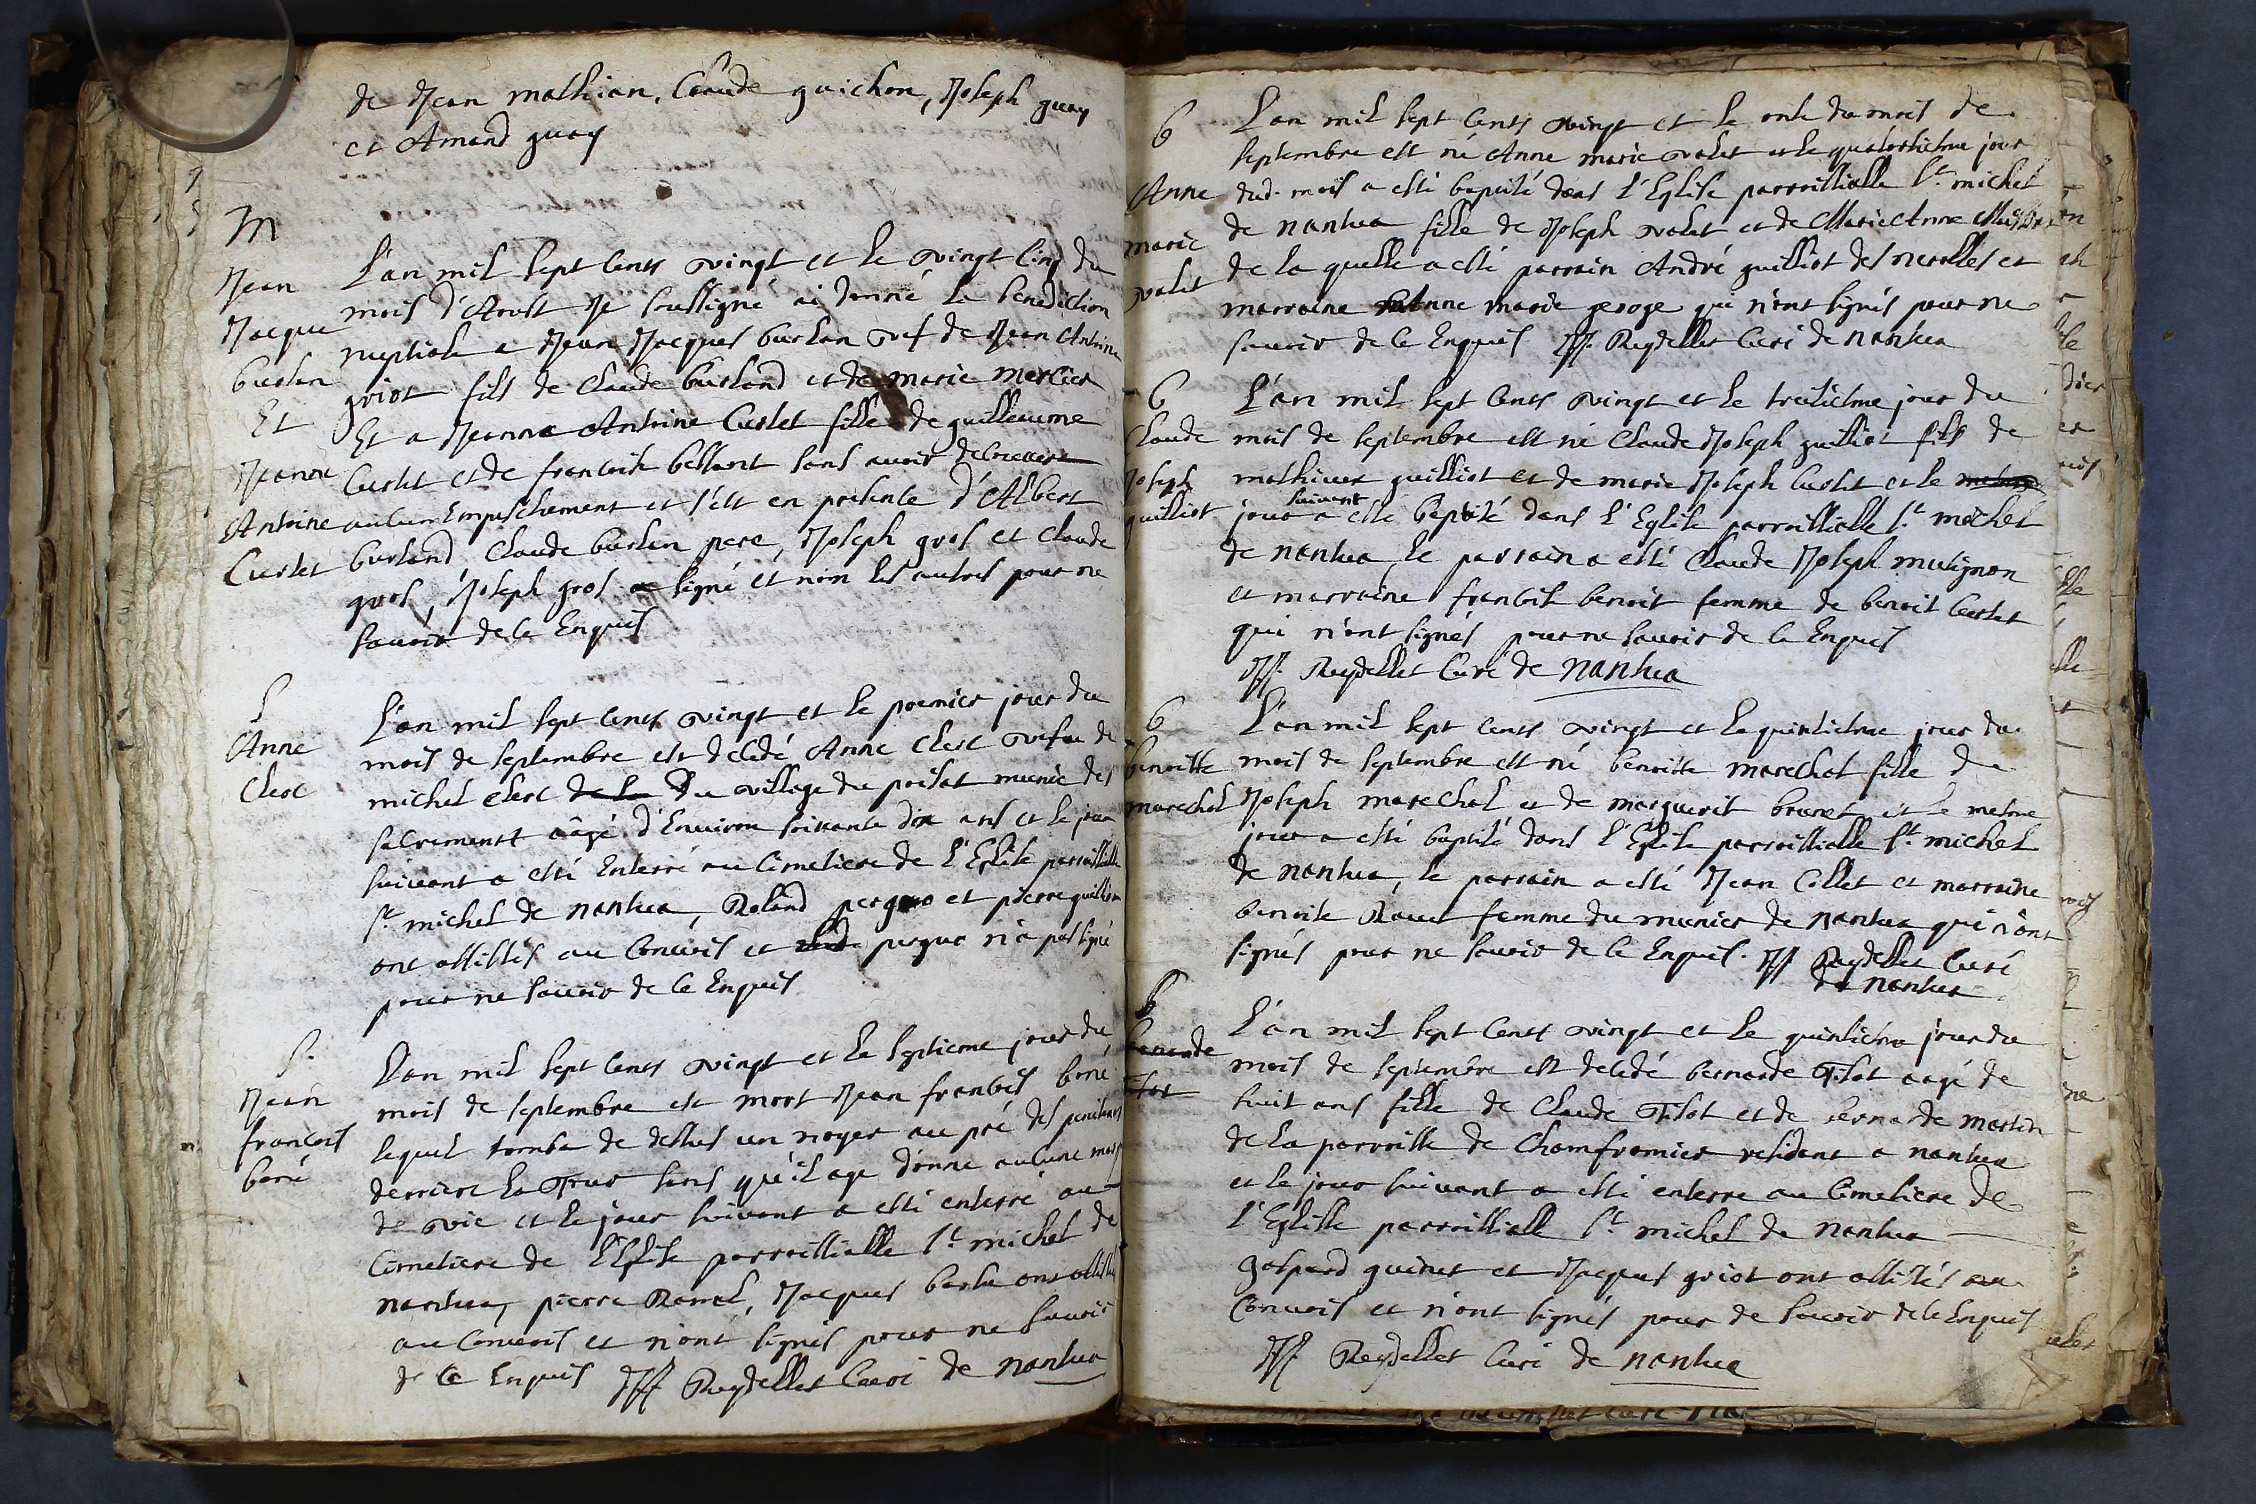 de Jean mathian, Claude guichon, Joseph guay
et Amand guay
M
Jean
Jacque
burlan
Et
Jeanne
Antoine
Curlet
L'an mil sept cents vingt et le vingt cinq du
mois d'Aoust Je soussigné ai donné la benediction
nuptiale a Jean Jacques burlan vef de Jean Antoine
griot fils de Claude burland et de marie mercier
Et a Jeanne Antoine Curlet fille de guilleaume
Curlet et de francoise bellant sans avoir decouvert
aucun Empeschement et s'est en presence d'Albert
burland Claude burlan pere, Joseph gros et Claude
gros, Joseph gros a signé et non les autres pour ne
scavoir de ce Enquis
S
Anne
Clerc
L'an mil sept cents vingt et le premier jour du
mois de septembre est decedé Anne Clerc vefue de
michel clerc du village du poisat munie des
sacrements aagé d'Environ soissante dix ans et le jour
suivant a esté Enterré au Cimetiere de l'Eglise parroissialle
St. michel de nantua, Roland perguo et pierre guilliot
ont assistés au Convois et perguo n'a pas signé
pour ne scavoir de ce Enquis
S.
Jean
francois
borré
L'an mil sept cents vingt et le septieme jour du
mois de septembre est mort Jean francois borré
lequel tomba de dessus un noyer au pré des penitents
derriere la Tour sans qu'il aye donne aucune marq
de vie et le jour suivant a esté enterré au
Cimetiere de l'Eglise parroissialle St. michel de
nantua, pierre Ravet, Jacques berlie ont assistés
au Convois et n'ont signés pour ne scavoir
de ce Enquis JJ. Reydellet Curé de nantua
6
Anne
marie
valet
L'an mil sept cents vingt et le onse du mois de
septembre est né Anne marie valet et le quatorsiesme jour
dud. mois a esté baptisé dans l'Eglise parroissialle St. michel
de nantua fille de Joseph valet et de Marie Anne
de la quelle a esté parrain André guilliot des neralles et
marraine Anne marie geroge qui n'ont signés pour ne
scavoir de ce Enquis JJ. Reydellet Curé de nantua
6
Claude
Joseph
guilliot
L'an mil sept cents vingt et le treisiesme jour du
mois de septembre est né Claude Joseph guilliot fils de
mathieur guilliot et de marie Joseph Curlet et le mesme
suivant
jour a esté baptisé dans l'Eglise parroissialle St. michel
de nantua, le parrain a esté Claude Joseph mutignon
et marraine francoise benoit femme de benoit Curlet
qui n'ont signés pour ne scavoir de ce Enquis
JJ. Reydellet Curé de nantua
6
benoitte
marechal
L'an mil sept cents vingt et le quinsiesme jour du
mois de septembre est né benoitte marechal fille de
Joseph marechal et de marguerit brunet et le mesme
jour a esté baptisé dans l'Eglise parroissialle St. michel
de nantua, le parrain a esté Jean Collet et marraine
benoite Ravet femme du munier de nantua qui n'ont
signés pour ne scavoir de ce Enquis. JJ Reydellet Curé
de nantua
L'an mil sept cents vingt et le quinsiesme jour du
mois de septembre est decedé bernarde Tisot aagé de
huit ans fille de Claude Tisot et de bernarde martin
de la parroisse de Chamfromier residant a nantua
et le jour suivant a esté enterre au Cimetiere de
l'Eglise parroissialle St. michel de nantua
gaspard guinet et Jacques griot ont assistés au
Convois et n'ont signés pour de scavoir de ce Enquis
JJ. Reydellet Curé de nantua